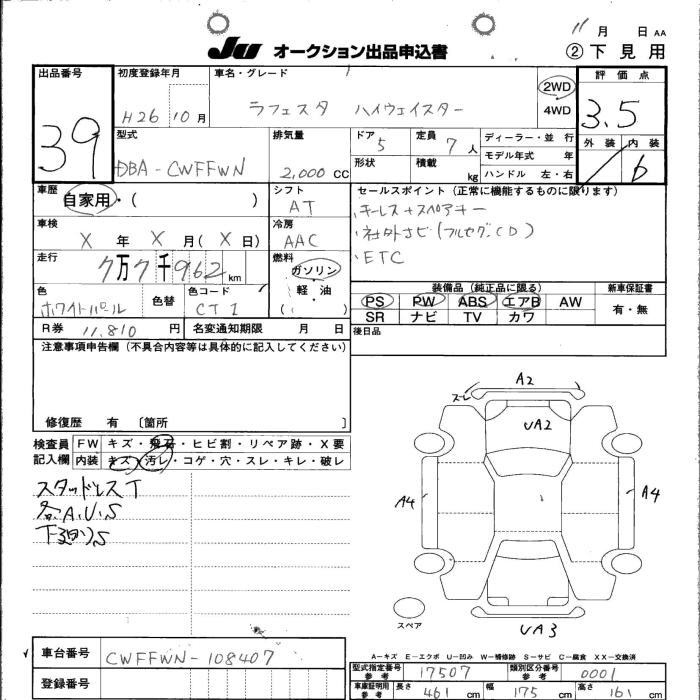 11 月 日 AA
JU オークション出品申込書 ② 下見用
出品番号 39
初度登録年月 H26 10月
車名・グレード ラフェスタ ハイウェイスター
2WD
4WD
評価点 3.5
外装 内装 6
型式 DBA-CWFFWN
排気量 2,000 CC
ドア 5
定員 7 人
形状
積載 kg
ディーラー・並行
モデル年式 年
ハンドル 左・右
車歴 自家用・( )
シフト AT
セールスポイント(正常に機能するものに限ります)
・キーレス+スペアキー
・社外ナビ(フルセグ、CD)
・ETC
車検 X 年 X 月( X 日)
冷房 AAC
走行 7万7千962 km
燃料 ガソリン・軽・油 ( )
色 ホワイトパール
色替
色コード CT1
装備品(純正品に限る)
PS PW ABS エアB AW
SR ナビ TV カワ
新車保証書 有・無
R券 11,810 円
名変通知期限 月 日
後日品
注意事項申告欄(不具合内容等は具体的に記入してください)
修復歴 有 [箇所 ]
検査員記入欄
FW キズ・飛石・ヒビ割・リペア跡・X要
内装 キズ・汚レ・コゲ・穴・スレ・キレ・破レ
スタッドレスT
各A.U.S
下廻りS
スレ A2
UA2
A4
A4
UA3
スペア
A－キズ E－エクボ U－凹み W－補修跡 S－サビ C－腐食 XX－交換済
車台番号 CWFFWN-108407
登録番号
型式指定番号 参考 17507
類別区分番号 参考 0001
車庫証明用 参考 長さ 461 cm 幅 175 cm 高さ 161 cm